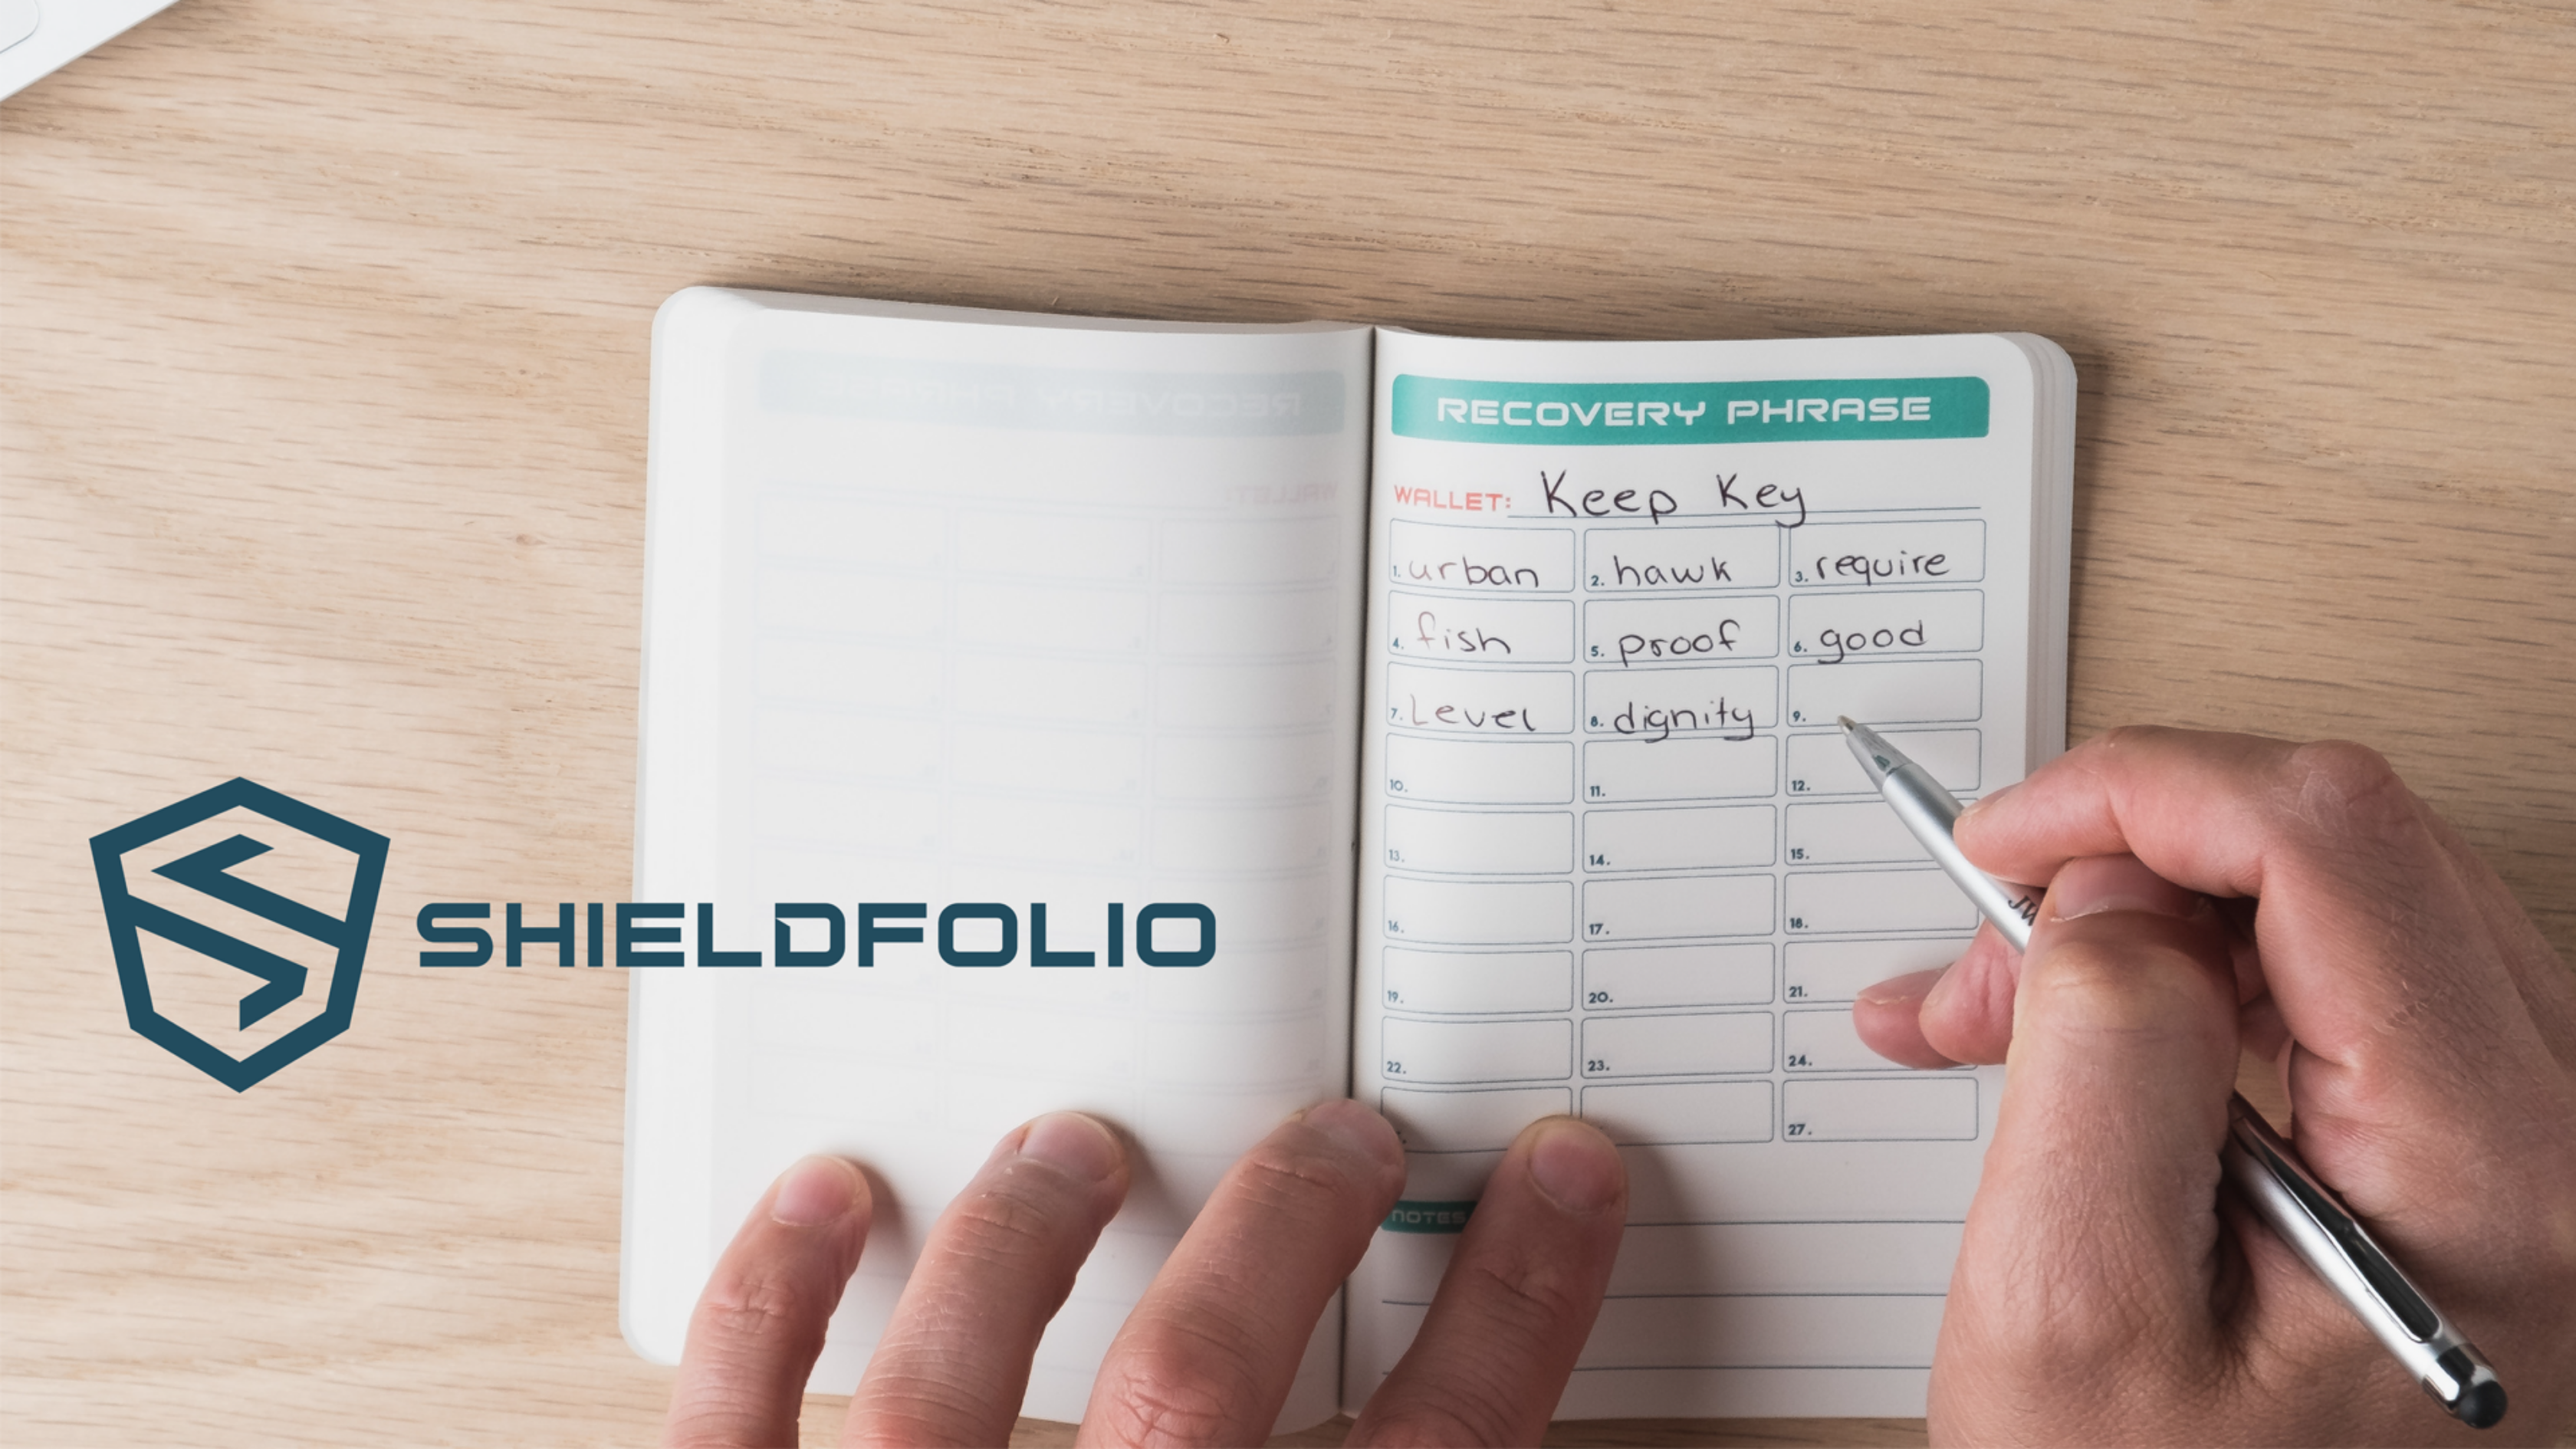 RECOVERY PHRASE
WALLET: Keep Key
1. urban 2. hawk 3. require
4. fish 5. proof 6. good
7. Level 8. dignity 9.
10. 11. 12.
13. 14. 15.
16. 17. 18.
19. 20. 21.
22. 23. 24.
27.
NOTES
SHIELDFOLIO
RECOVERY PHRASE
WALLET: